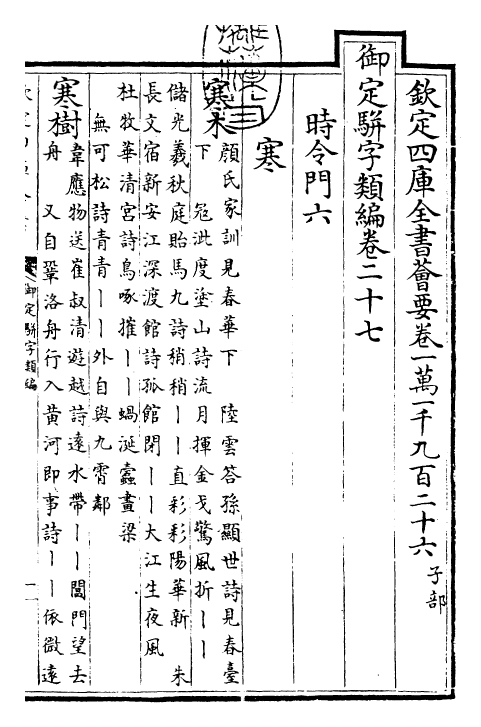 欽定四庫全書薈要卷一萬一千九百二十六 子部
御定駢字類編卷二十七
時令門六
寒
寒木 顔氏家訓見春華下 陸雲答孫顯世詩見春臺
下 寇泚度塗山詩流月揮金戈驚風折丨丨
儲光羲秋庭貽馬九詩稍稍丨丨直彩彩陽華新 朱
長文宿新安江深渡館詩孤館閉丨丨大江生夜風
杜牧華清宮詩鳥啄摧丨丨蝸涎蠹畫梁
無可松詩青青丨丨外自與九霄鄰
寒樹 韋應物送崔叔清遊越詩遠水帶丨丨閶門望去
舟 又自鞏洛舟行入黃河即事詩丨丨依微遠
御定駢字類編
一